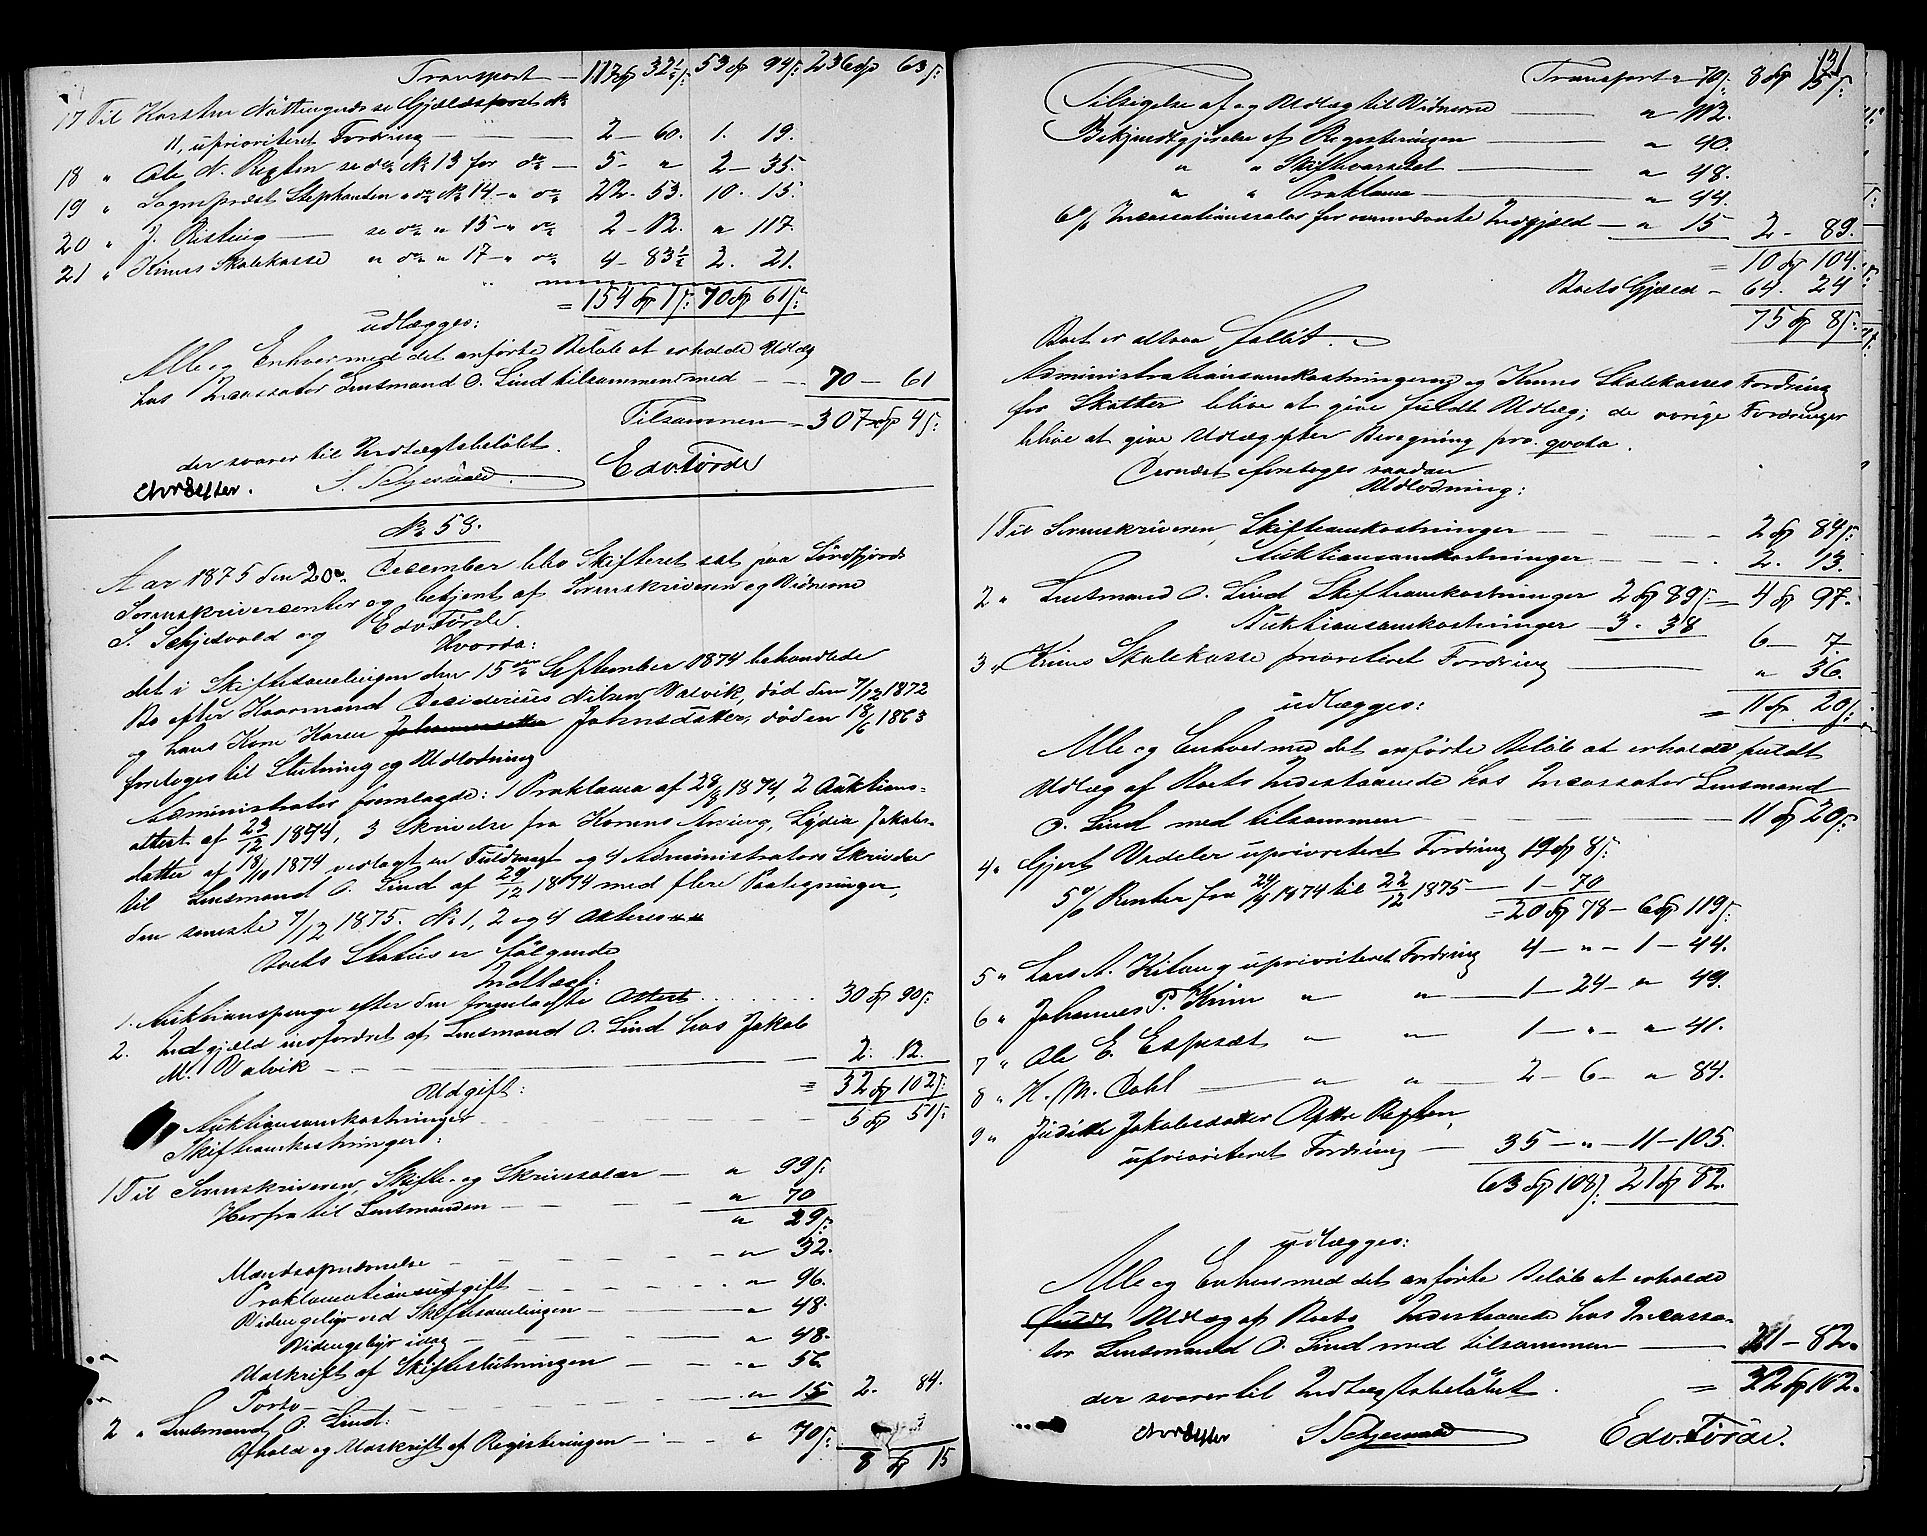 Transport — 117 Sp 32½ s: 53 Sp 94 s: 236 Sp 63 s:
17 Til Karsten Nøttingnæs se Gjældspost No
11, uprioriteret Fordring — 2 — 60. 1. 19.
18 " Ole N. Rixten se do No 13 for do — 5 — " 2 — 35.
19 " Sogneprest Stephansen " do No 14 — " do 22 — 53. 10. 15.
20 " J. Risting — se do " 15 — " do 2 — 12. " 117.
21 " Kinns Skolekasse " do " 17 — " do 4 — 83½ 2. 21.
= 154 Sp 1 s: 70 Sp 61 s:
udlægges:
Alle og Enhver med det anførte Beløb at erholde Udlæg
hos Incassator Lensmand O. Lind tilsammen med — 70 — 61
Tilsammen = 307 Sp 4 s:
der svarer til Indtægtsbeløbet.
S. Schjesvold. Edv. Førde
No 58.
Aar 1875 den 20de December blev Skifteret sat paa Søndfjords
Sorenskriverembede og betjent af Sorenskriveren og Vidnerne
S. Schjesvold og Edv. Førde.
Hvorda:
det i Skiftesamlingen den 15de September 1874 behandlede
Bo efter Kaarmand Desiderius Nilsen Valvik, død den 7/12 1872
og hans Kone Karen Johnsdatter, død den 18/6 1863
foretoges til Slutning og Udlodning
Administrator fremlagde: 1 Proklama af 28/8 1874, 2 Auktions-
attest af 23/12 1874, 3 Skrivelse fra Lydia Jakobs-
datter af 18/10 1874 vedlagt en Fuldmagt og 4 Administrators Skrivelse
til Lensmand O. Lind af 29/12 1874 med flere Paategninger,
den seneste 7/12 1875. No 1, 2 og 4
Boets Status er følgende
Indtægt:
1. Auktionspenge efter den fremlagte Attest . . . . . 30 Sp 90 s:
2. Indgjæld indfordret af Lensmand O. Lind hos Jakob
M. Valvik — 2. 12.
= 32 Sp 102 s:
Udgift:
Auktionsomkostninger — 5 Sp 51 s:
Skifteomkostninger:
1 Til Sorenskriveren, Skifte- og Skriversalær — " 99 s:
Herfra til Lensmanden — " 70
" 29 s:
Mandsopnævnelse — " 32.
Proklamationsudgift — " 96.
Vidnegebyr ved Skiftesamlingen — " 48.
Vidnegebyr idag — " 48.
Udskrift af Skifteslutningen — " 56
Porto — " 15 2. 84.
2 " Lensmand O. Lind:
Afhold og Udskrift af Registeringen — " 70 s:
8 Sp 15
131
Transport " 70 s: 8 Sp 15 s:
Tilsigelse af og Udlæg til Vidnerne — " 112.
Bekjendtgjørelse af Registeringen — " 40.
" " Skiftevarselet — " 48.
" " Proklama — " 44.
6% Incassationssalær for Indgjæld — " 15 2 — 89.
= 10 Sp 104.
Boets Gjæld — 64. 24
75 Sp 8 s:
Boet er altsaa fallit.
Administrationsomkostningerne og Kinns Skolekasses Fordring
for Skatter blive at give fuldt Udlæg; de øvrige Fordringer
blive at give Udlæg efter Beregning pro quota.
Derneſt foretoges saadan
Udlodning:
1 Til Sorenskriveren, Skifteomkostninger — 2 Sp 84 s:
Auktionsomkostninger — 2. 13.
2 " Lensmand O. Lind Skifteomkostninger 2 Sp 89 s: = 4 Sp 97.
Auktionsomkostninger — 3. 38 6 — 7.
3 " Kinns Skolekasse prioriteret Fordring — " 36.
udlægges: = 11 Sp 20 s:
Alle og Enhver med det anførte Beløb at erholde fuldt
Udlæg af Boets Indestaaende hos Incassator Lensmand
O. Lind med tilsammen — 11 Sp 20 s:
4 " Gjert Vedeler uprioriteret Fordring 19 Sp 8 s:
5% Renter fra 24/9 1874 til 22/12 1875 — 1 — 70
= 20 Sp 78 — 6 Sp 119 s:
5 " Lars A. uprioriteret Fordring 4 — " — 1 — 44.
6 " Johannes P. Kinn " " — 1 — 24 — " 49.
7 " Ole E. Espeset " " 1 — " — " 41.
8 " H. M. Dahl — " " — 2 — 6 — " 84.
9 " Judithe Jakobsdatter Rixten,
uprioriteret Fordring — 35 — " — 11 — 105.
63 Sp 108 s: 21 Sp 82.
udlægges:
Alle og Enhver med det anførte Beløb at erholde
fuldt Udlæg af Boets Indestaaende hos Incassa-
tor Lensmand O. Lind med tilsammen — 21 — 82.
der svarer til Indtægtsbeløbet. = 32 Sp 102.
S Schjesvold Edv. Førde.